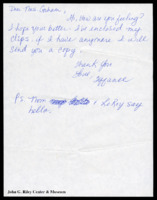 Hi, How are you feeling?
I hope your better. I've enclosed my
clips. if I have anymore I will
send you a copy.
Thank You
Love
P.S. Mom & LeRoy say
hello.
John G. Riley Center & Museum